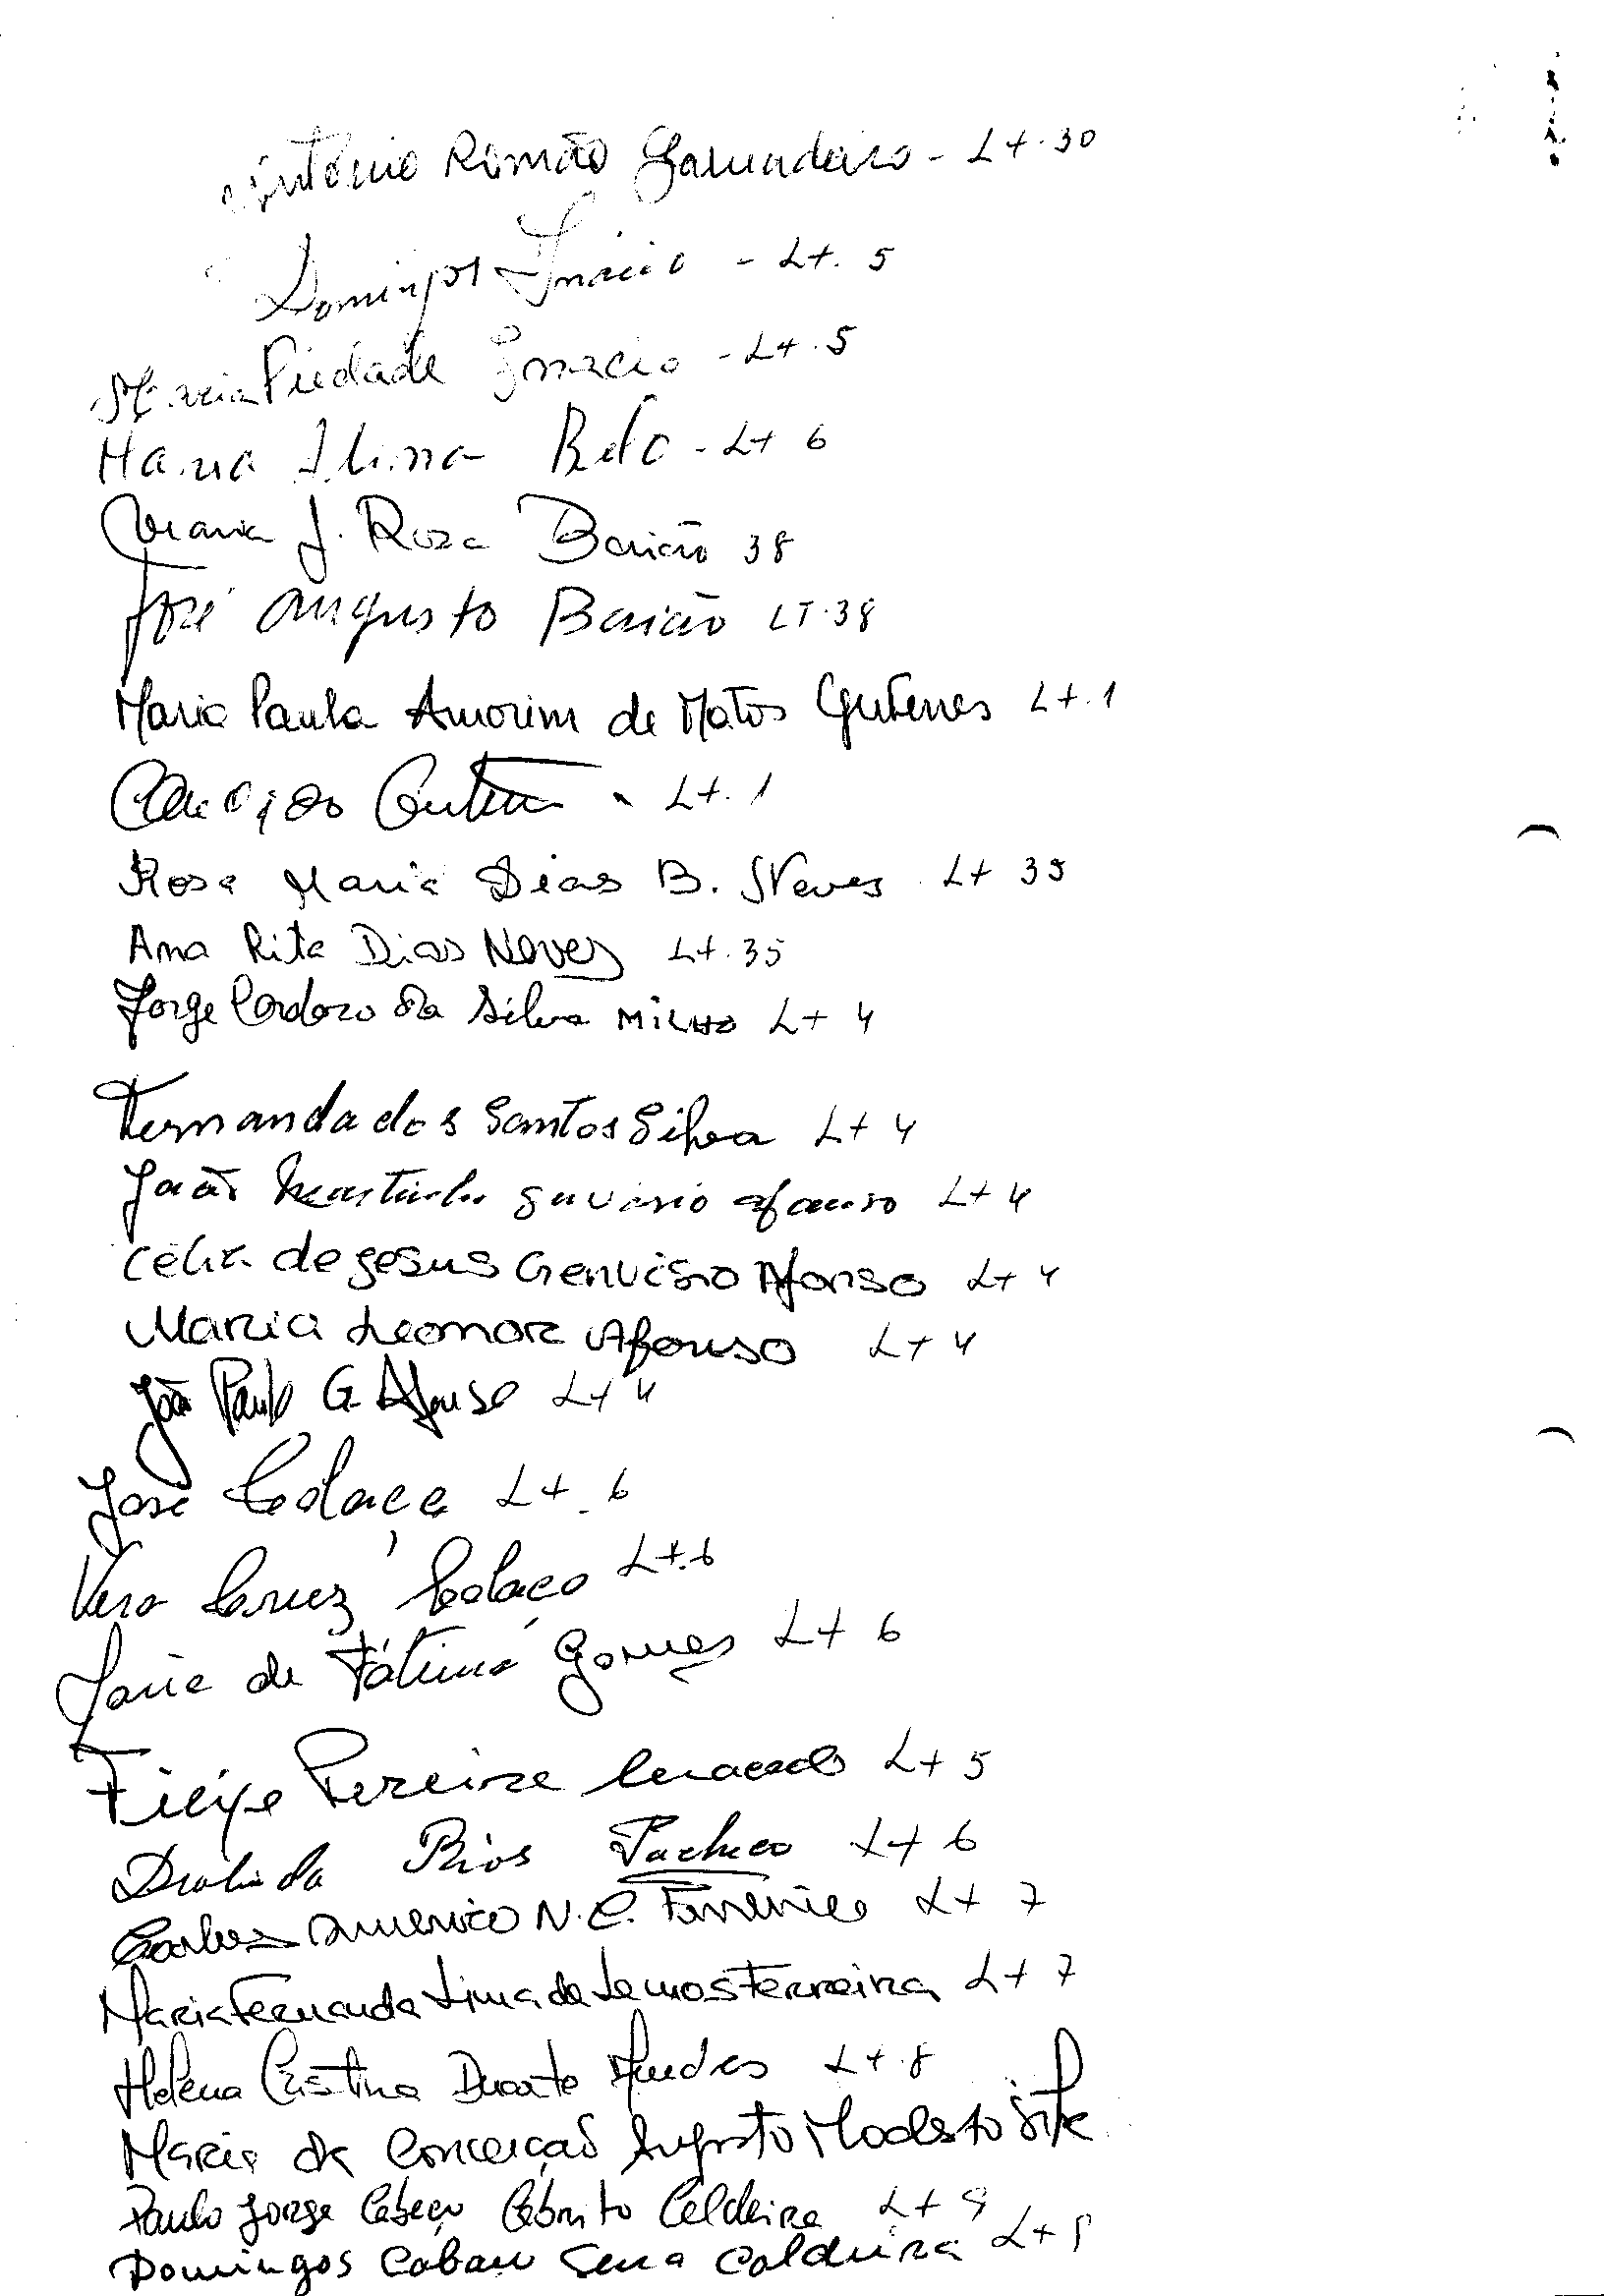 António Romão - Lt. 30
Domingos Inácio - Lt. 5
Maria Piedade Ignacio - Lt. 5
Maria - Lt 6
Maria J. Rosa Baião 38
José Augusto Baião LT. 38
Maria Paula Amorim de Matos Guterres Lt. 1
Lt. 1
Rosa Maria Dias B. Neves Lt 35
Ana Rita Dias Neves Lt. 35
Jorge Cardoso da Silva MILHO Lt 4
Fernanda dos Santos Silva Lt 4
João Martinho Afonso Lt 4
Célia de Jesus Gervásio Afonso Lt 4
Maria Leonor Afonso Lt 4
João Paulo G. Afonso Lt 4
José Colaço Lt. 6
Vera Cruz Colaço Lt. 6
Maria de Fátima Gomes Lt 6
Filipe Pereira Lt 5
Rios Pacheco Lt 6
Carlos Américo N. C. Ferreira Lt 7
Maria Fernanda Lima de Lemos Ferreira Lt 7
Helena Cristina Duarte Mendes Lt. 8
Maria da Conceição Augusto Modesto
Paulo Jorge Cabeço Cabrito Caldeira Lt 9
Domingos Sena Caldeira Lt